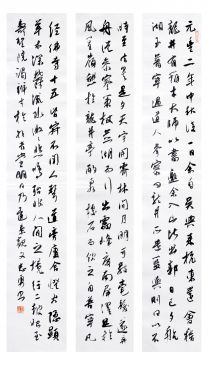 元豐二年中秋後一日余自吳興道杭東還會稽
龍井有辨才大師以書邀余入山比出郭日已夕航
湖至普寧遇道人參寥問龍井所遣籃輿則曰以不
時至去矣是夕天宇開霽林間月明可數毫髮遂棄
舟從參寥杖策並湖而行出雷峰度南屏
風篁嶺憩於龍井亭酌泉據石而飲之自普寧凡
經佛寺十五皆寂不聞人聲道旁廬舍燈火隱顯
草木深鬱流水激激悲鳴殆非人間之境行二鼓始至
壽聖院謁辨才於潮音堂明日乃還秦觀文